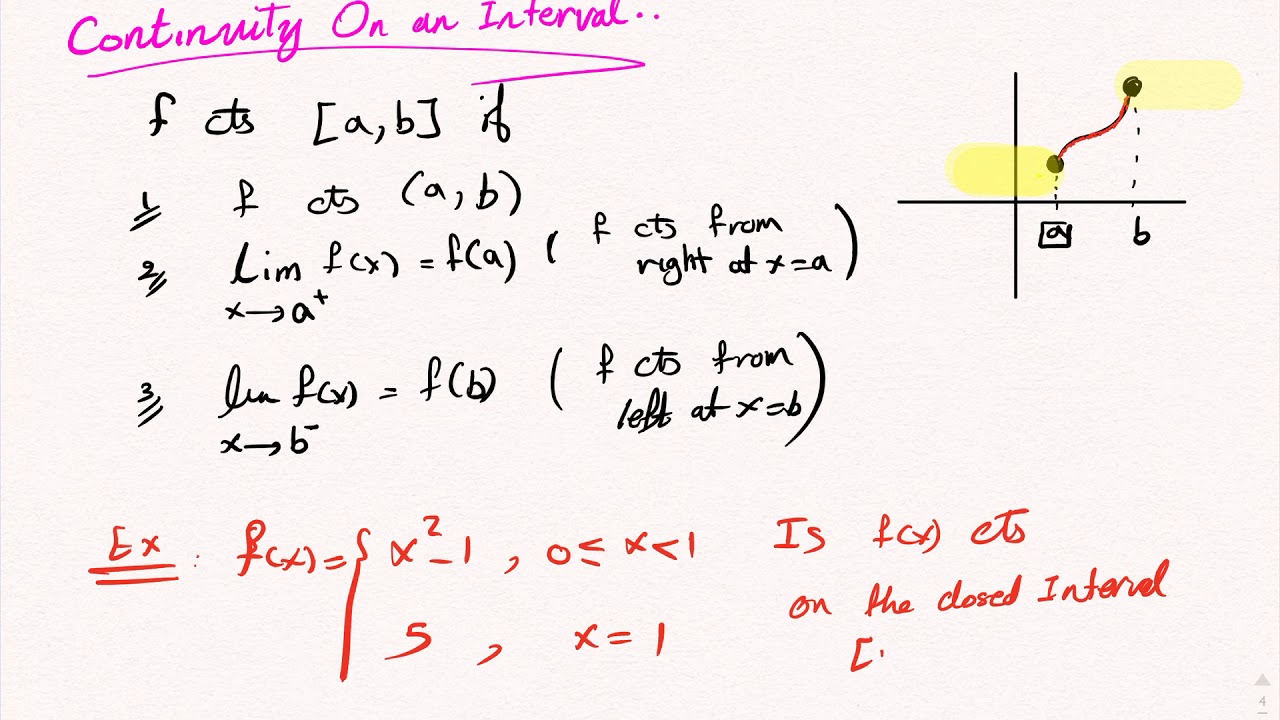 Continuity On an Interval..
f cts [a,b] if
1 f cts (a,b)
2 lim f(x) = f(a) ( f cts from
right at x=a )
x→a⁺
3 lim f(x) = f(b) ( f cts from
left at x=b )
x→b⁻
a b
Ex : f(x)= { x²-1 , 0≤ x<1
5 , x=1
Is f(x) cts
on the closed Interval
[
4